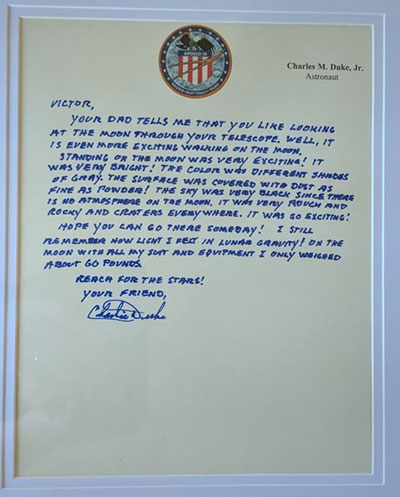 APOLLO 16
Charles M. Duke, Jr.
Astronaut
VICTOR,
YOUR DAD TELLS ME THAT YOU LIKE LOOKING
AT THE MOON THROUGH YOUR TELESCOPE. WELL, IT
IS EVEN MORE EXCITING WALKING ON THE MOON.
STANDING ON THE MOON WAS VERY EXCITING! IT
WAS VERY BRIGHT! THE COLOR WAS DIFFERENT SHADES
OF GRAY. THE SURFACE WAS COVERED WITH DUST AS
FINE AS POWDER! THE SKY WAS VERY BLACK SINCE THERE
IS NO ATMOSPHERE ON THE MOON. IT WAS VERY ROUGH AND
ROCKY AND CRATERS EVERYWHERE. IT WAS SO EXCITING!
HOPE YOU CAN GO THERE SOMEDAY! I STILL
REMEMBER HOW LIGHT I FELT IN LUNAR GRAVITY! ON THE
MOON WITH ALL MY SUIT AND EQUIPMENT I ONLY WEIGHED
ABOUT 60 POUNDS.
REACH FOR THE STARS!
YOUR FRIEND,
Charlie Duke